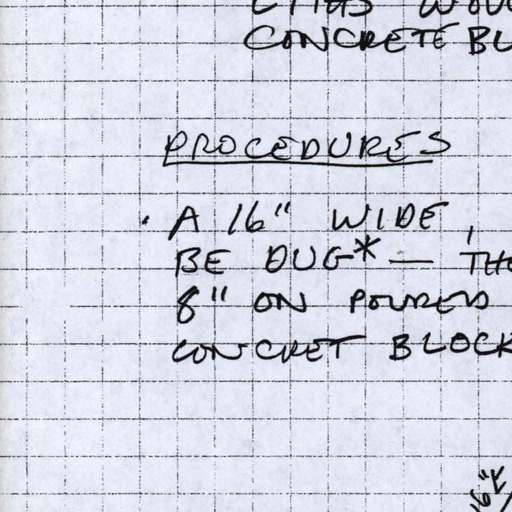 CONCRETE BL
PROCEDURES
. A 16" WIDE,
BE DUG* — THE
8" ON POURED
CONCRET BLOCK
16"